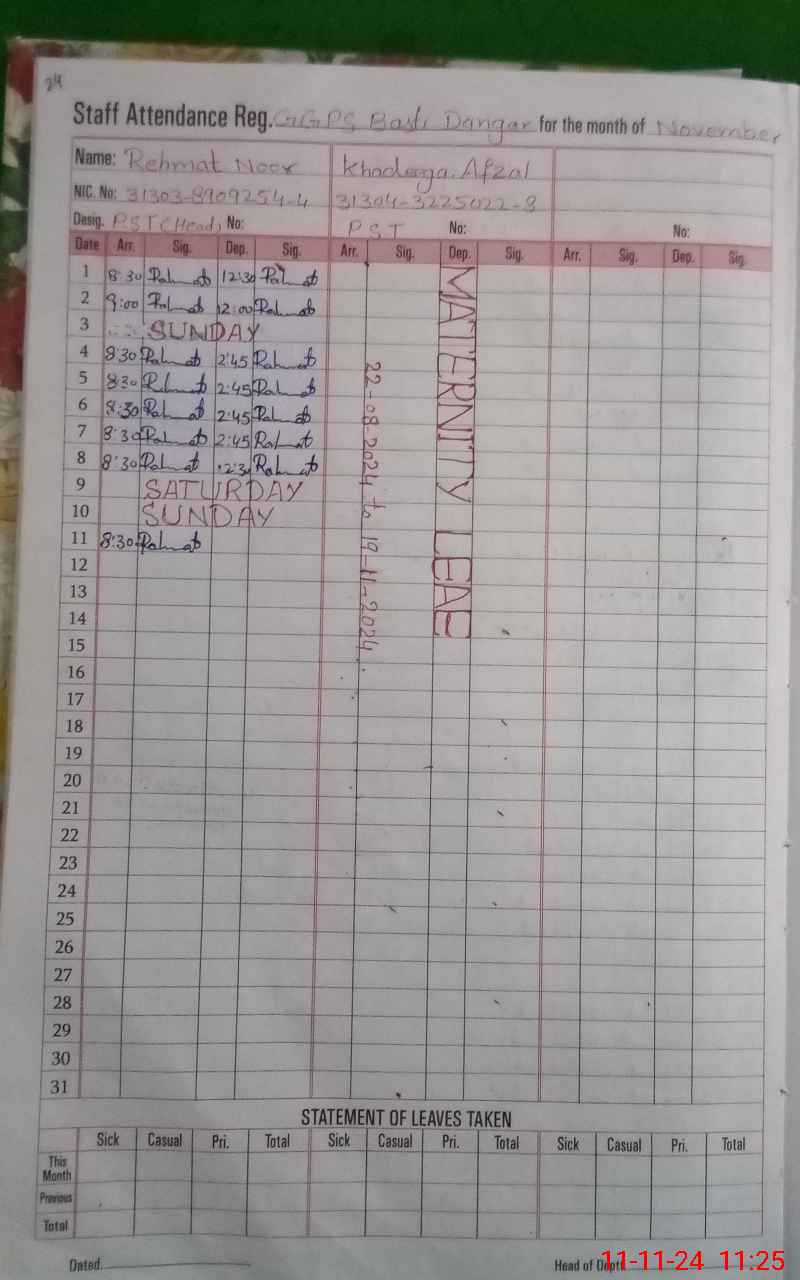 24
Staff Attendance Reg. GGPS Basti Dangar for the month of November
Name: Rehmat Noor Khadeega Afzal
NIC. No: 31303-8909254-4 31304-3225022-8
Desig. PST (Head) No: PST No: No:
Date Arr. Sig. Dep. Sig. Arr. Sig. Dep. Sig. Arr. Sig. Dep. Sig.
1 8:30 Rahmat 12:30 Rahmat
2 9:00 Rahmat 12:00 Rahmat
3 SUNDAY
4 8:30 Rahmat 2:45 Rahmat
5 8:30 Rahmat 2:45 Rahmat
6 8:30 Rahmat 2:45 Rahmat
7 8:30 Rahmat 2:45 Rahmat
8 8:30 Rahmat 12:30 Rahmat
9 SATURDAY
10 SUNDAY
11 8:30 Rahmat
12
13
14
15
16
17
18
19
20
21
22
23
24
25
26
27
28
29
30
31
22-08-2024 to 19-11-2024.
MATERNITY LEAE
STATEMENT OF LEAVES TAKEN
Sick Casual Pri. Total Sick Casual Pri. Total Sick Casual Pri. Total
This Month
Previous
Total
Dated. Head of Deptt.
11-11-24 11:25